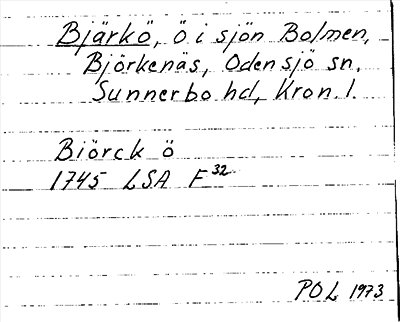 Bjärkö, ö i sjön Bolmen,
Björkenäs, Odensjö sn.
Sunnerbo hd, Kron. l.
Biörck ö
1745 LSA F 32
POL 1973